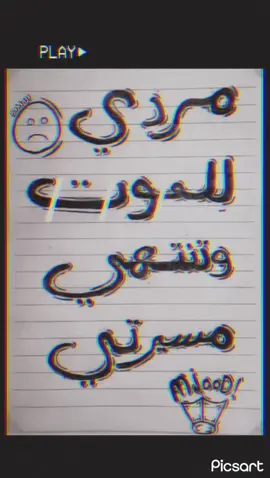 PLAY
مردي
للموت
وتنتهي
مسيرتي
mjooD!
Picsart